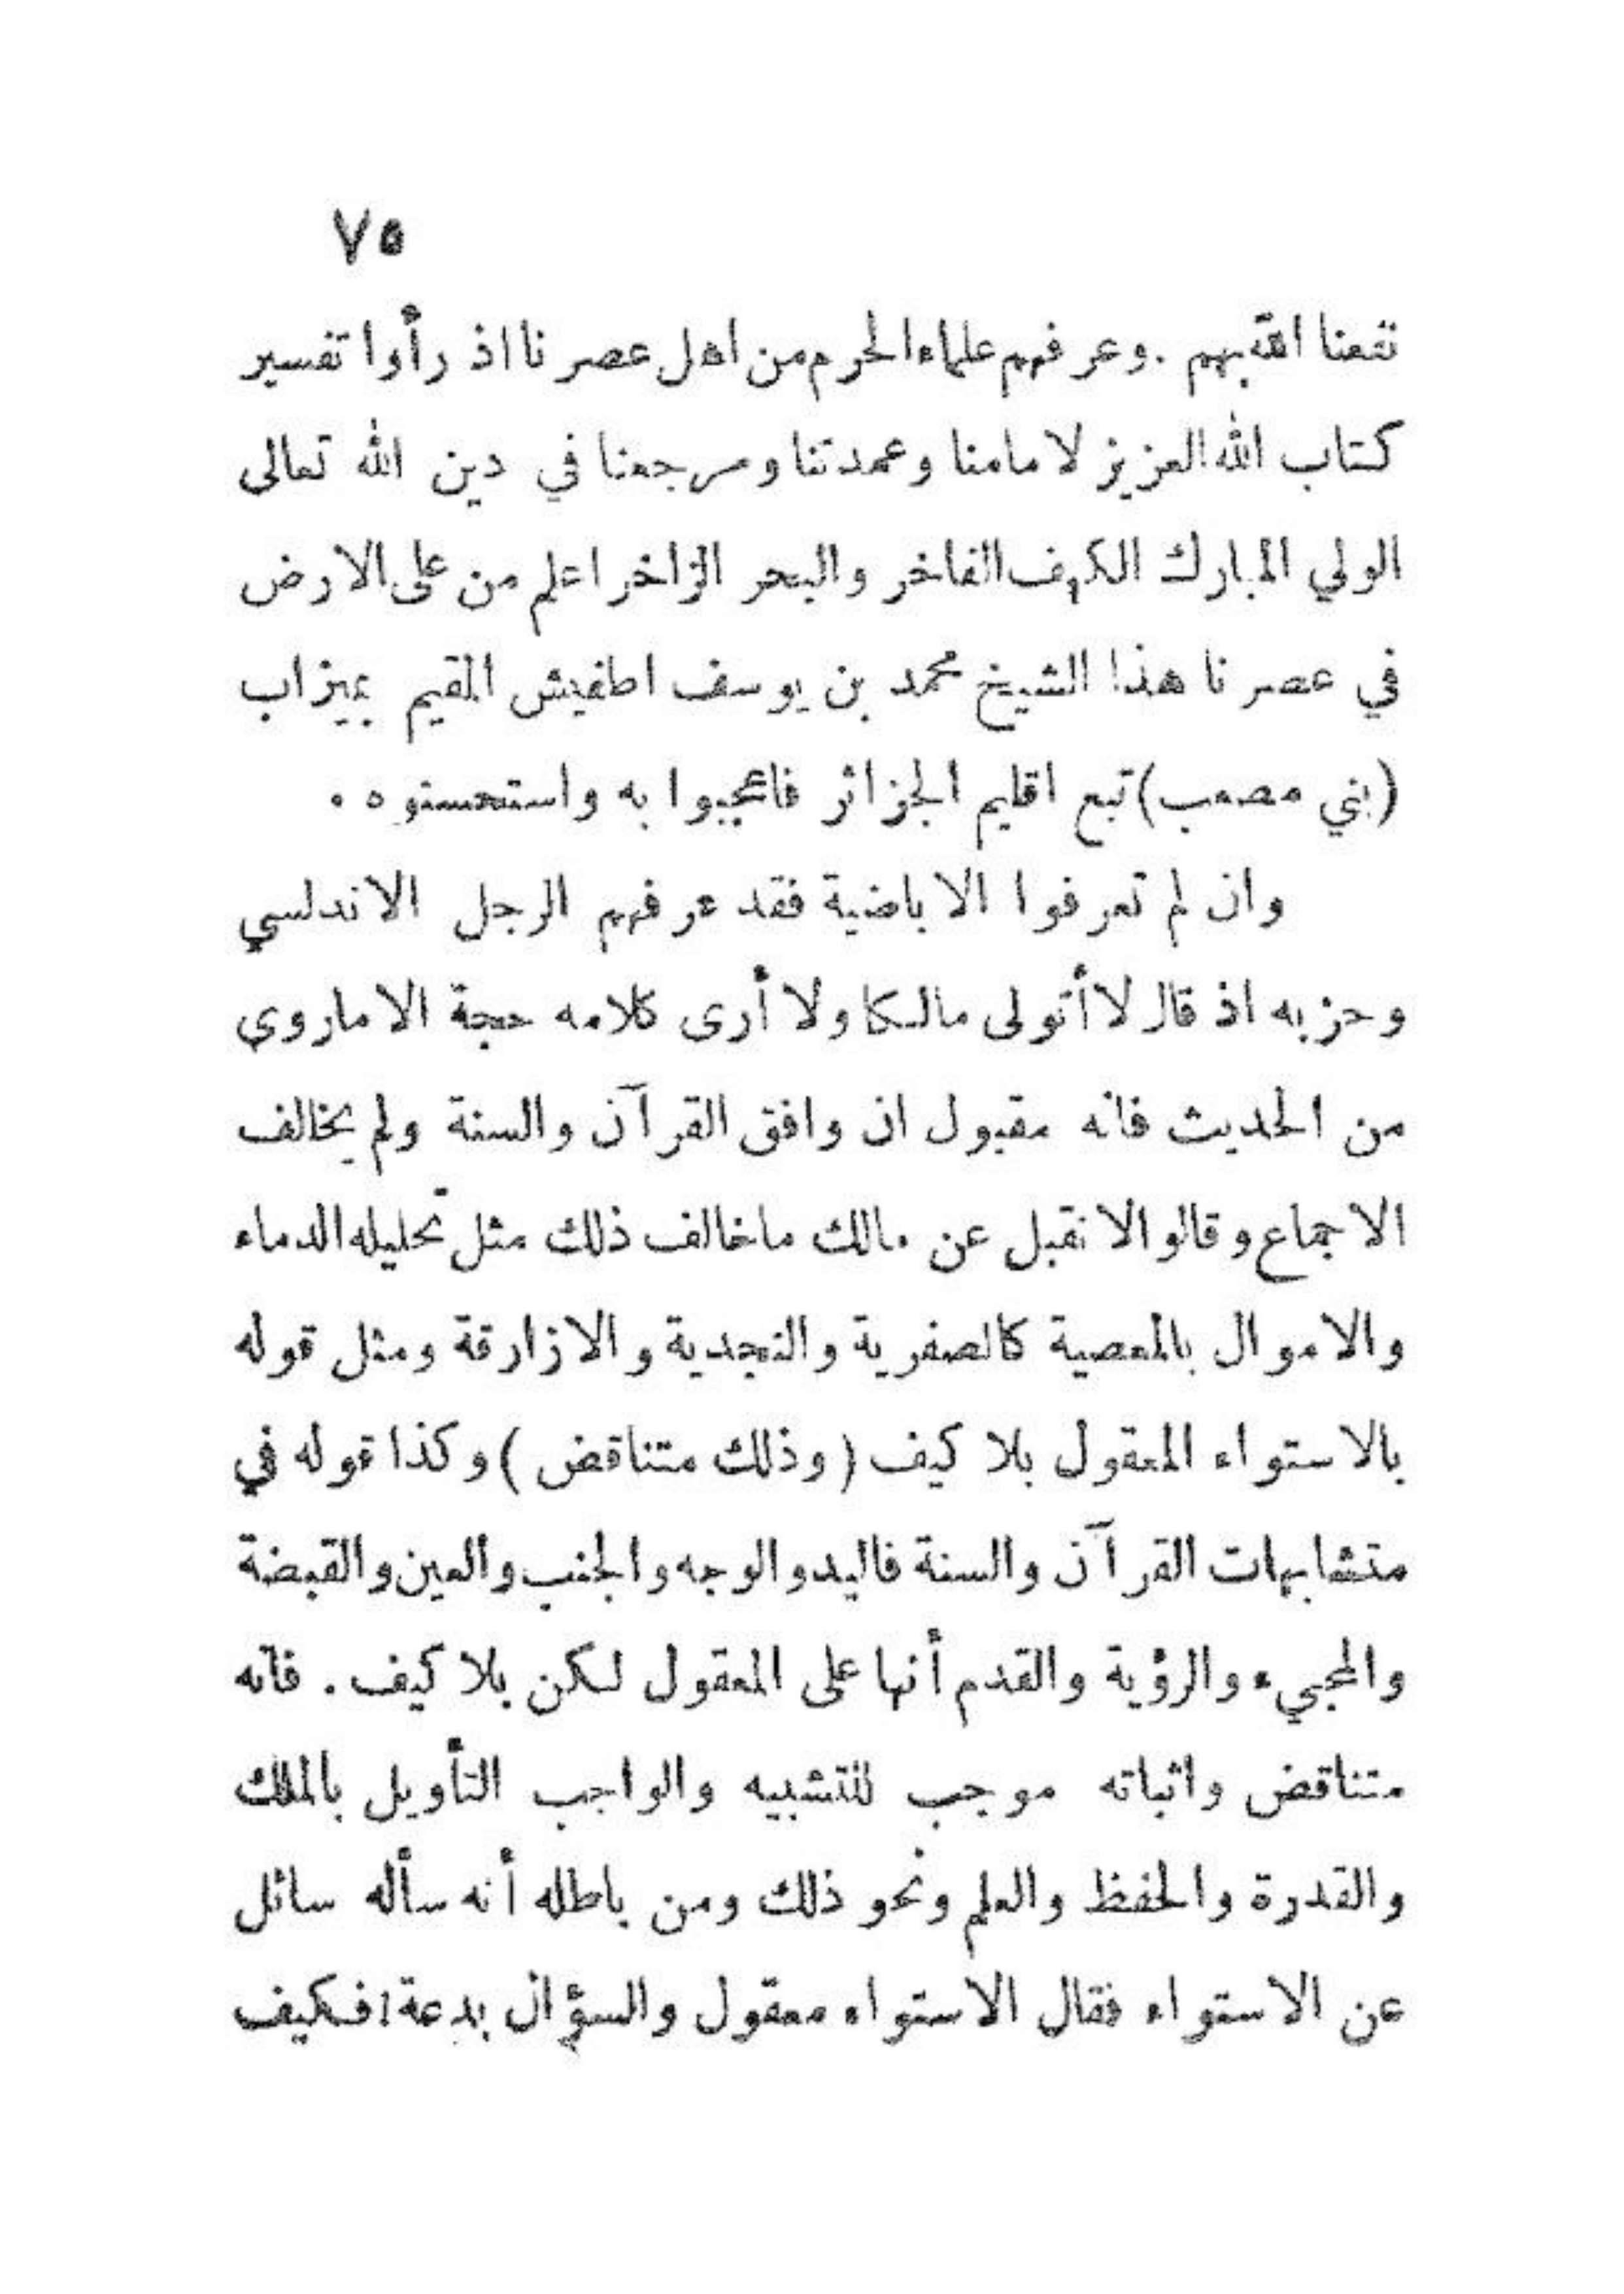 ٧٥
نفعنا الله بهم . وعرفهم علماء الحرم من اهل عصرنا اذ رأوا تفسير
كتاب الله العزيز لامامنا وعمدتنا ومرجعنا في دين الله تعالى
الولي المبارك الكهف الفاخر والبحر الزاخر اعلم من على الارض
في عصرنا هذا الشيخ محمد بن يوسف اطفيش المقيم بميزاب
(بني مصعب) تبع اقليم الجزائر فاعجبوا به واستحسنوه .
وان لم تعرفوا الاباضية فقد عرفهم الرجل الاندلسي
وحزبه اذ قال لا أتولى مالكا ولا أرى كلامه حجة الا ماروي
من الحديث فانه مقبول ان وافق القرآن والسنة ولم يخالف
الاجماع وقالوا لانقبل عن مالك ماخالف ذلك مثل تحليله الدماء
والاموال بالمعصية كالصفرية والنجدية والازارقة ومثل قوله
بالاستواء المعقول بلا كيف ( وذلك متناقض ) وكذا قوله في
متشابهات القرآن والسنة فاليد والوجه والجنب والعين والقبضة
والمجيء والرؤية والقدم أنها على المعقول لكن بلا كيف . فانه
متناقض واثباته موجب للتشبيه والواجب التأويل بالملك
والقدرة والحفظ والعلم ونحو ذلك ومن باطله أنه سأله سائل
عن الاستواء فقال الاستواء معقول والسؤال بدعة ! فكيف